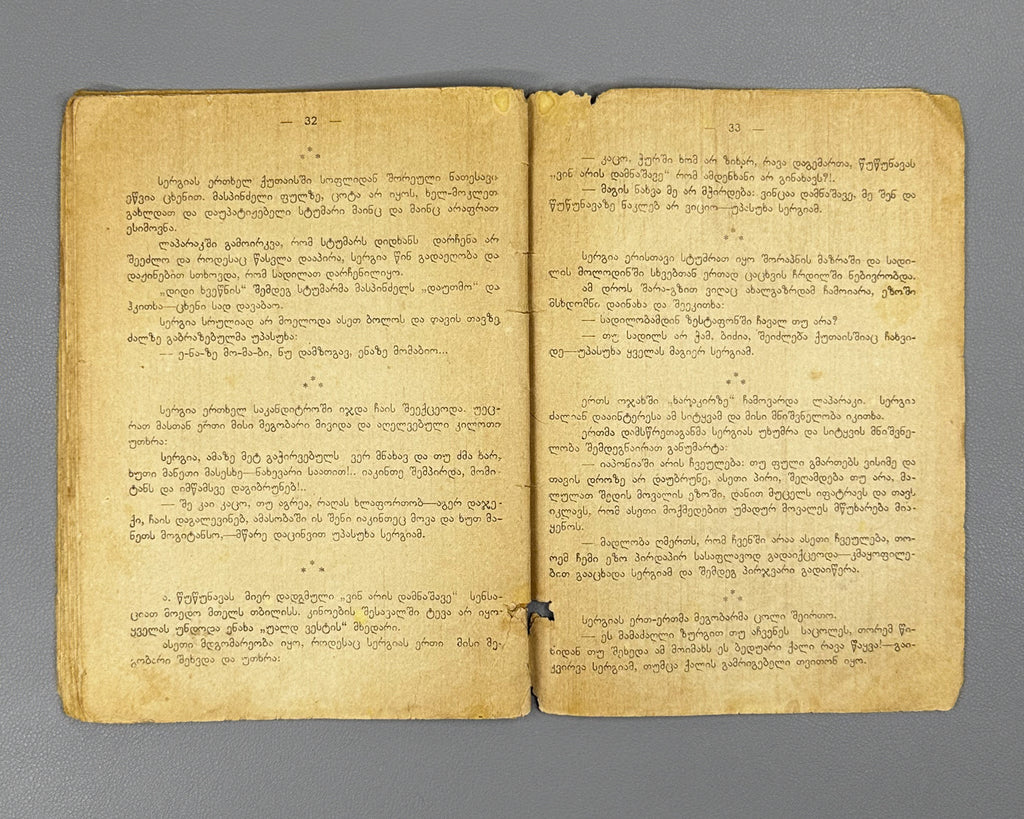 — 32 —
* * *
სერგიას ერთხელ ქუთაისში სოფლიდან შორეული ნათესავი
ეწვია ცხენით. მასპინძელი ფულზე, ცოტა არ იყოს, ხელ-მოკლეთ
გახლდათ და დაუპატიჟებელი სტუმარი მაინც და მაინც არაფრათ
ესიმოვნა.
ლაპარაკში გამოირკვა, რომ სტუმარს დიდხანს დარჩენა არ
შეეძლო და როდესაც წასვლა დააპირა, სერგია წინ გადაეღობა და
დაჟინებით სთხოვდა, რომ სადილათ დარჩენილიყო.
„დიდი ხვეწნის“ შემდეგ სტუმარმა მასპინძელს „დაუთმო“ და
ჰკითხა—ცხენი სად დავაბაო.
სერგია სრულიად არ მოელოდა ასეთ ბოლოს და თავის თავზე
ძალზე გაბრაზებულმა უპასუხა:
— ე-ნა-ზე მო-მა-ბი, ნუ დამზოგავ, ენაზე მომაბიო...
* * *
სერგია ერთხელ საკანდიტროში იჯდა ჩაის შეექცეოდა. უეც-
რათ მასთან ერთი მისი მეგობარი მივიდა და აღელვებული კილოთი
უთხრა:
სერგია, ამაზე მეტ გაჭირვებულს ვერ მნახავ და თუ ძმა ხარ,
ხუთი მანეთი მასესხე—ნახევარი საათით!.. იაკინთე შემპირდა, მომი-
ტანს და იმწამსვე დაგიბრუნებ!..
— შე კაი კაცო, თუ აგრეა, რაღას ხლაფორთობ—აგერ დაჯე-
ქი, ჩაის დაგალევინებ, ამასობაში ის შენი იაკინთეც მოვა და ხუთ მა-
ნეთს მოგიტანსო,—მწარე დაცინვით უპასუხა სერგიამ.
* * *
ა. წუწუნავას მიერ დადგმული „ვინ არის დამნაშავე“ სენსა-
ციათ მოედო მთელს თბილისს. კინოების შესავალში ტევა არ იყო-
ყველას უნდოდა ენახა „უალდ ვესტის“ მხედარი.
ასეთი მდგომარეობა იყო, როდესაც სერგიას ერთი მისი მე-
გობარი შეხვდა და უთხრა:
33 —
— კაცო, ჭურში ხომ არ ზიხარ, რავა დაგემართა, წუწუნავას
„ვინ არის დამნაშავე“ რომ ამდენხანი არ გინახავს?!.
— მაგის ნახვა მე არ მჭირდება: ვინცაა დამნაშავე, მე შენ და
წუწუნავაზე ნაკლებ არ ვიციო—უპასუხა სერგიამ.
* * *
სერგია ერისთავი სტუმრათ იყო შორაპნის მაზრაში და სადი-
ლის მოლოდინში სხვებთან ერთად ცაცხვის ჩრდილში ნებივრობდა.
ამ დროს შარა-გზით ვიღაც ახალგაზრდამ ჩამოიარა, ეზოში
მსხდომნი დაინახა და შეეკითხა:
— სადილობამდინ ზესტაფონში ჩავალ თუ არა?
— თუ სადილს არ ჭამ, ბიძია, შეიძლება ქუთაისშიაც ჩახვი-
დე—უპასუხა ყველას მაგიერ სერგიამ.
* * *
ერთს ოჯახში „ხარაკირზე“ ჩამოვარდა ლაპარაკი. სერგია
ძალიან დააინტერესა ამ სიტყვამ და მისი მნიშვნელობა იკითხა.
ერთმა დამსწრეთაგანმა სერგიას უხუმრა და სიტყვის მნიშვნე-
ლობა შემდეგნაირათ განუმარტა:
— იაპონიაში არის ჩვეულება: თუ ფული გმართებს ვისიმე და
თავის დროზე არ დაუბრუნე, ასეთი პირი, შეღამდება თუ არა, მა-
ლულათ შედის მოვალის ეზოში, დანით მუცელს იფატრავს და თავს
იკლავს, რომ ასეთი მოქმედებით უმადურ მოვალეს მწუხარება მია-
ყენოს.
— მადლობა ღმერთს, რომ ჩვენში არაა ასეთი ჩვეულება, თო-
რემ ჩემი ეზო პირდაპირ სასაფლავოდ გადაიქცეოდა—კმაყოფილე-
ბით გააცხადა სერგიამ და შემდეგ პირჯვარი გადაიწერა.
* * *
სერგიას ერთ-ერთმა მეგობარმა ცოლი შეირთო.
— ეს მამაძაღლი ზურგით თუ აჩვენეს საცოლეს, თორემ წი-
ნიდან თუ შეხედა ამ მოიმახს ეს ბედუარი ქალი რავა წაყვა!—გაი-
კვირვა სერგიამ, თუმცა ქალის გამრიგებელი თვითონ იყო.